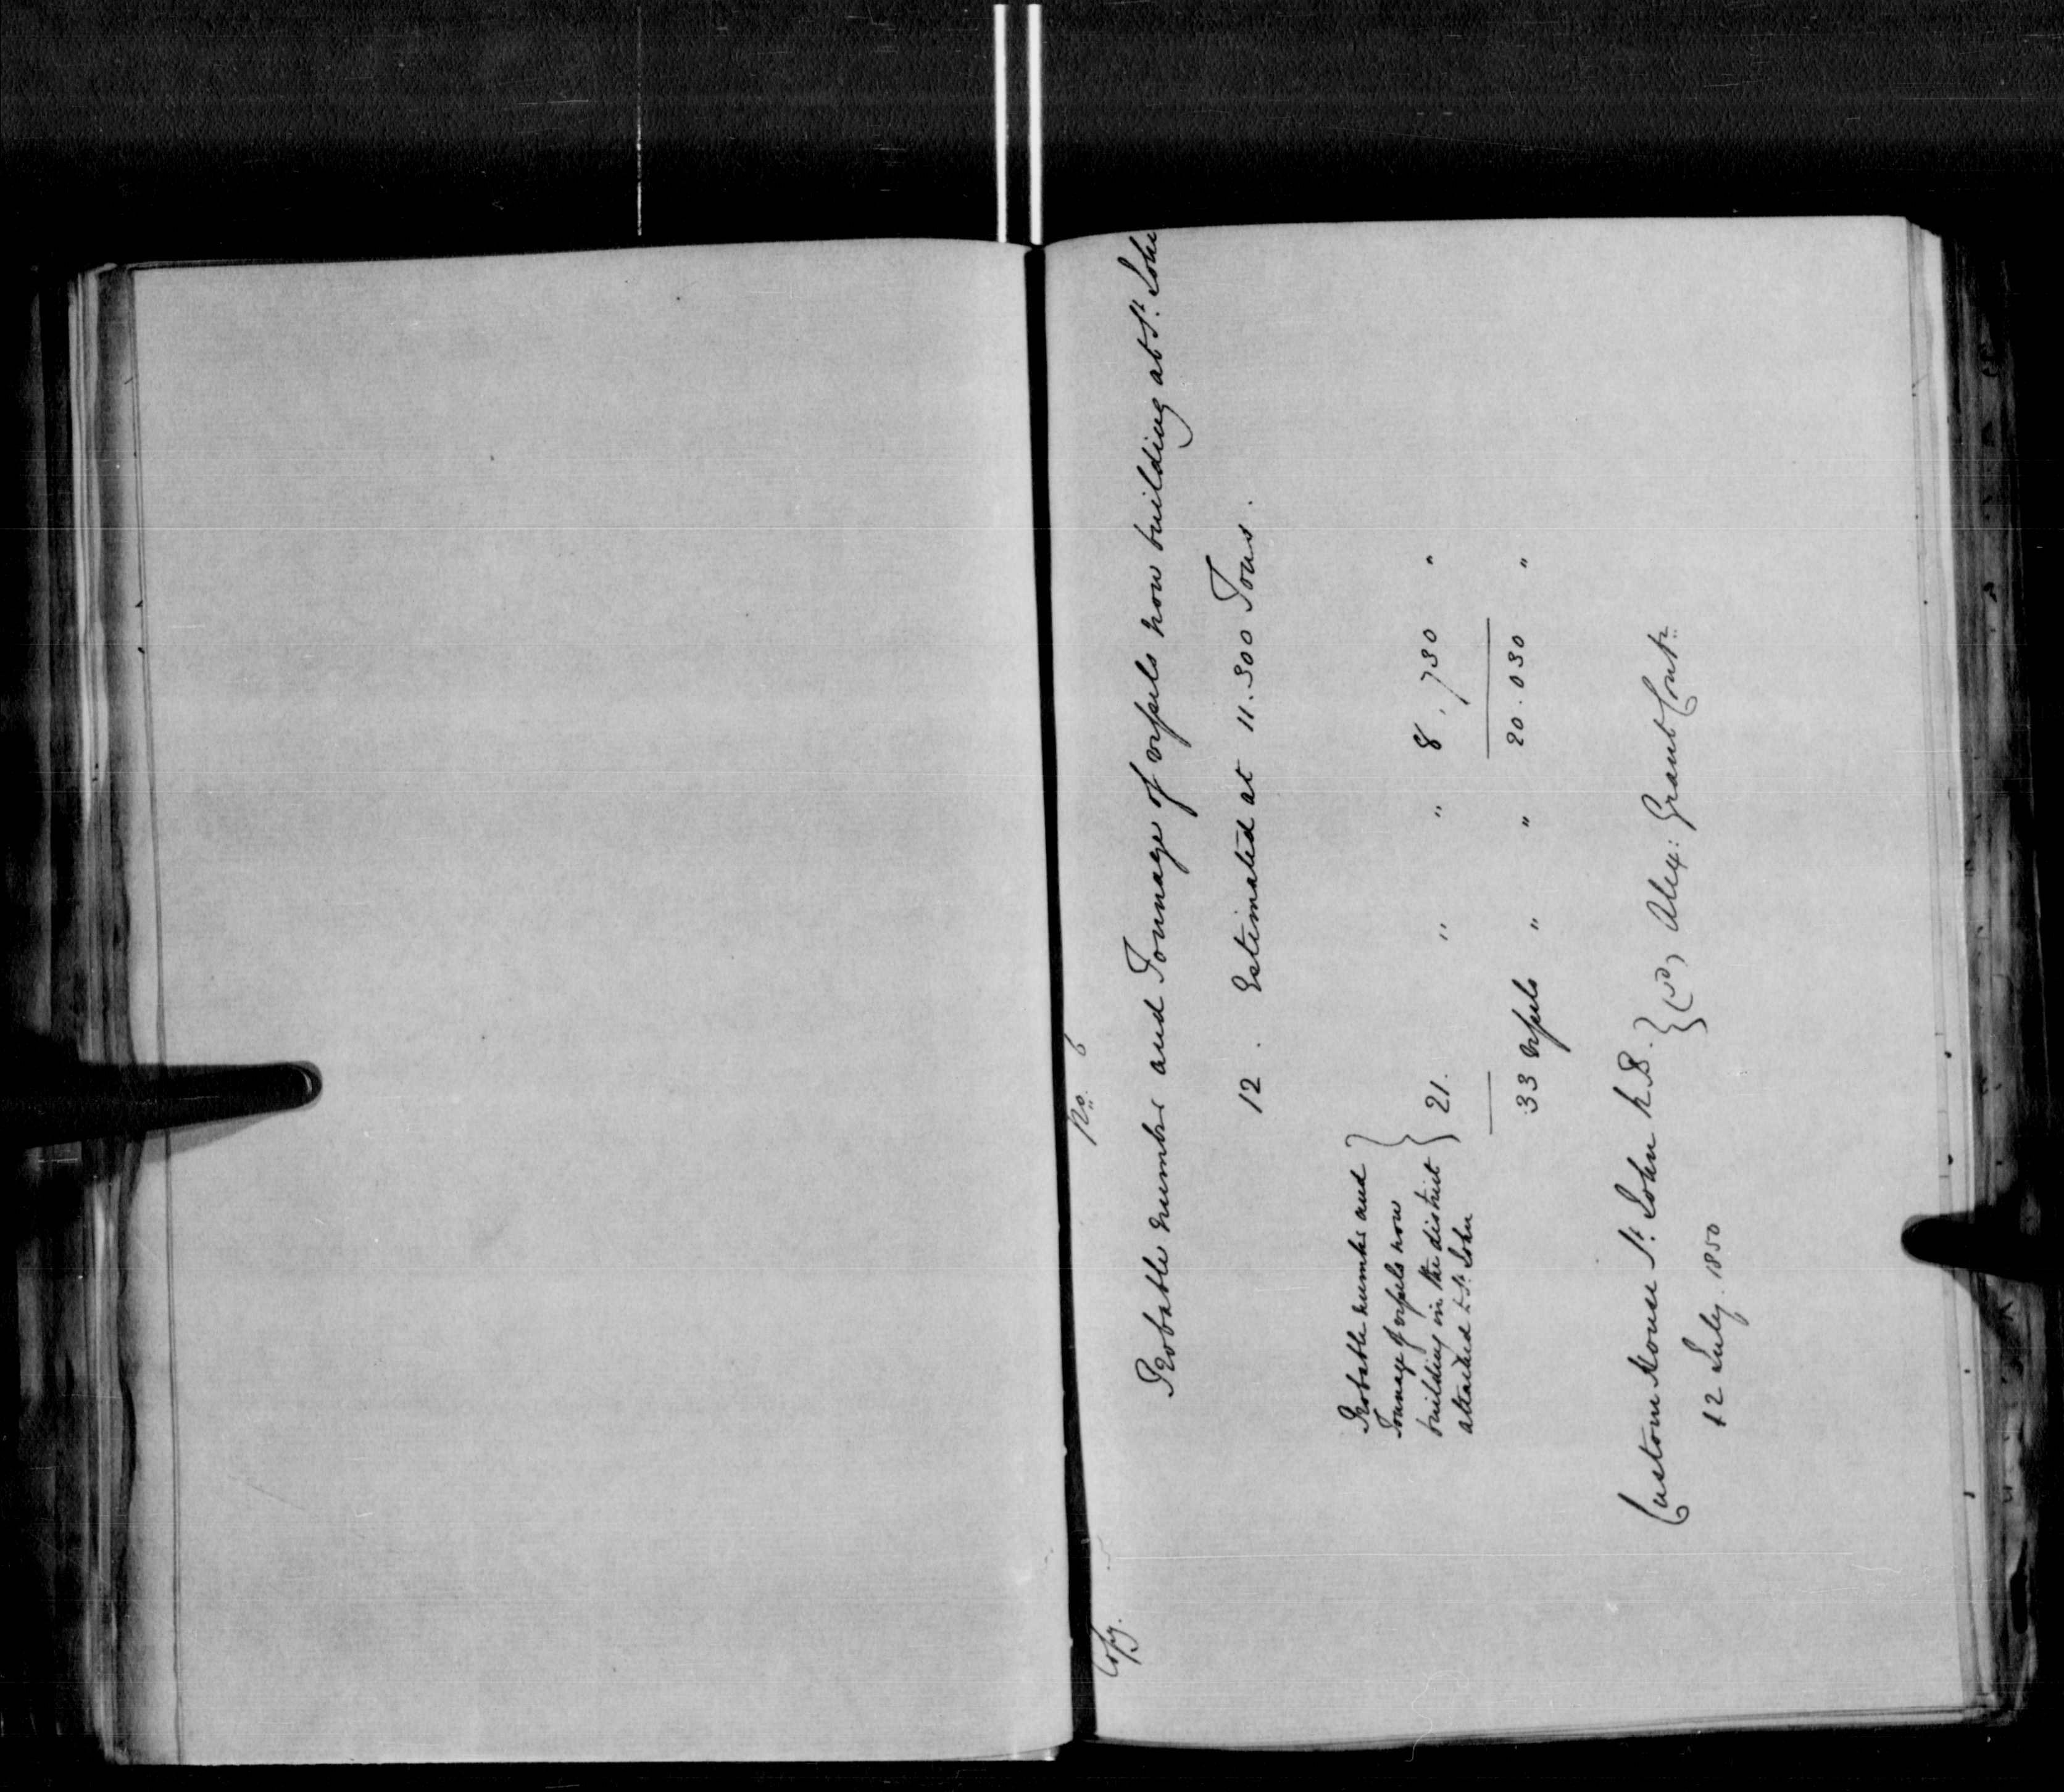 Copy.
No. 6
Probable number and Tonnage of vessels now building at St. John
12. Estimated at 11.300 Tons.
Probable number and
Tonnage of vessels now
building in the district
attached to St. John
21. " " 8.730 "
33 vessels " " 20.030 "
Custom House St. John N.B.
12 July 1850
(sd) Alex: Grant Contr.